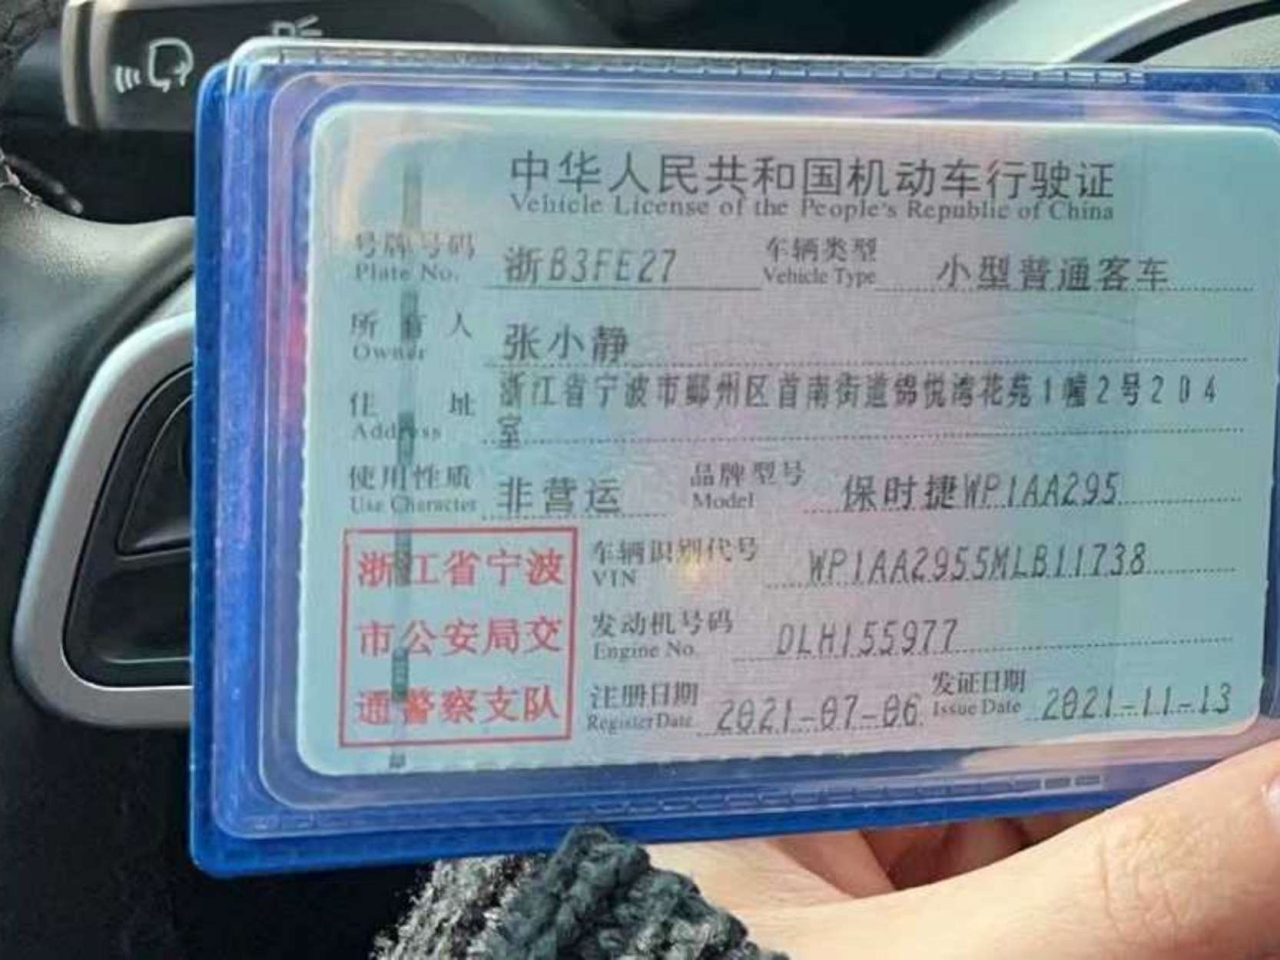 中华人民共和国机动车行驶证
Vehicle License of the People's Republic of China
号牌号码 浙B3FE27 车辆类型 小型普通客车
Plate No. Vehicle Type
所有人 张小静
Owner
住址 浙江省宁波市鄞州区首南街道锦悦湾花苑1幢2号204
Address 室
使用性质 非营运 品牌型号 保时捷WP1AA295
Use Character Model
浙江省宁波
市公安局交
通警察支队
车辆识别代号 WP1AA2955MLB11738
VIN
发动机号码 DLH155977
Engine No.
注册日期 2021-07-06 发证日期 2021-11-13
Register Date Issue Date